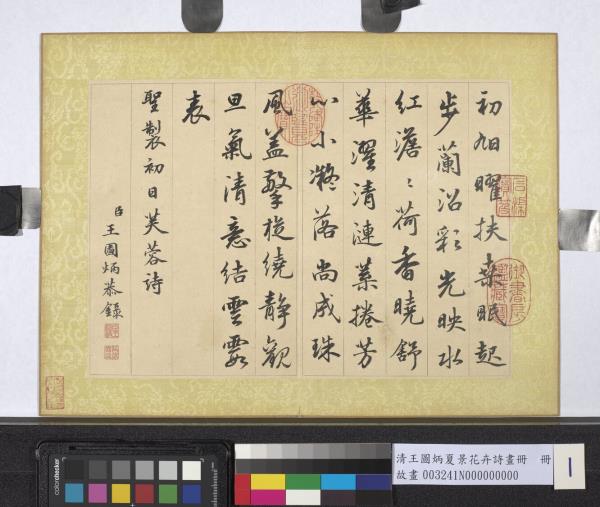 初旭曜扶桒眠起
步蘭沼彩光映水
紅澹〻荷香曉舒
華濯清漣葉捲芳
心小凝落尚成珠
風蓋擎旋繞靜觀
旦氣清意結雲霞
表
聖製初日芙蓉詩
臣王圖炳恭錄
石渠寶笈
御書房鑑藏寶
colorchecker
清王圖炳夏景花卉詩畫冊 冊
故畫 003241N000000000
1